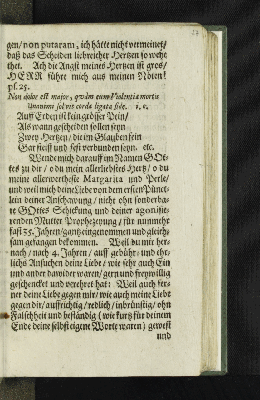 gen / non putaram, ich hätte nicht vermeinet /
daß das Scheiden liebreicher Hertzen so wehe
thet. Ach die Angst meines Hertzen ist gros /
HERR führe mich aus meinen Nöten!
ps. 25.
Non dolor est major, qvàm cum violentia mortis
Unanimi solvit corda ligata fide. i. e.
Auff Erden ist kein grösser Pein /
Als wann gescheiden sollen seyn
Zwey Hertzen / die im Glauben fein
Gar steiff und fest verbunden seyn. etc.
Wende mich darauff im Namen GOt-
tes zu dir / o du mein allerliebstes Hertz / o du
meine allerwertheste Margarita und Perle /
und weil mich deine Liebe von dem ersten Pünct-
lein deiner Anschawung / nicht ohn sonderba-
re GOttes Schickung und deiner agonisi-
renden Mutter Prophezeyung / für nunmehr
fast 35. Jahren / gantz eingenommen und gleich-
sam gefangen bekommen. Weil du mir her-
nach / nach 4. Jahren / auff gebühr- und ehr-
lichs Ansuchen deine Liebe / wie sehr auch Ein
und ander dawider waren / gern und freywillig
geschencket und verehret hat: Weil auch fer-
ner deine Liebe gegen mir / wie auch meine Liebe
gegen dir / auffrichtig / redlich / inbrünstig / ohn
Falschheit und beständig (wie kurtz für deinem
Ende deine selbst eigene Worte waren) gewest
und